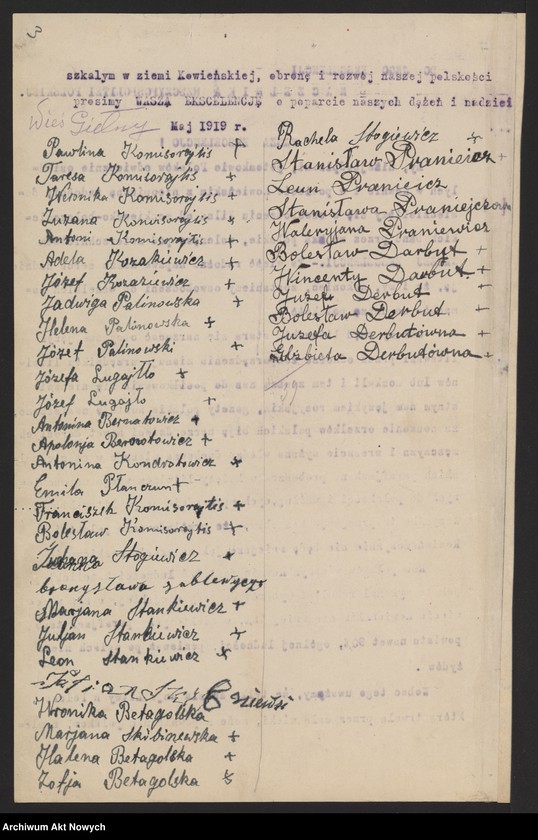 3
szkałym w ziemi Kowieńskiej, obronę i rozwój naszej polskości
prosimy WASZĄ EKSCELENCJĘ o poparcie naszych dążeń i nadziei
Wieś Giełny
Maj 1919 r.
Pawlina Komisorajtis +
Taresa Komisorajtis +
Weronika Komisorojtis +
Zuzana Komisorojtis +
Antoni Komisorojtis +
Adela Kozakiewicz +
Józef Kozaziewicz +
Jadwiga Palinowska +
Helena Palinowska +
Józef Palinowski +
Józefa Lugajło +
Józef Lugajło +
Antonina Bernatowicz +
Apolonja Bernotowicz +
Antonina Kondratowicz +
Emila
Franciszek Komisorojtis +
Bolesław Komisorojtis +
Stogiewicz +
bronysława sablewyczr
Marjana Stankiewicz +
Juljan Stankiewicz +
Leon Stankiewicz +
Wronika Betagolska
Marjana Skibiszewska +
Halena Betagolska +
Zofja Betagolska +
Rachela Stogiewicz +
Stanisław Praniewicz +
Leun Praniewicz
Stanisława Praniejczowa
Waleryjana Praniewicz
Bolesław Darbut +
Wincenty Darbut +
Juzef Derbut +
Bolesław Derbut +
Juzefa Derbutówna +
Elżbieta Derbutówna +
Archiwum Akt Nowych